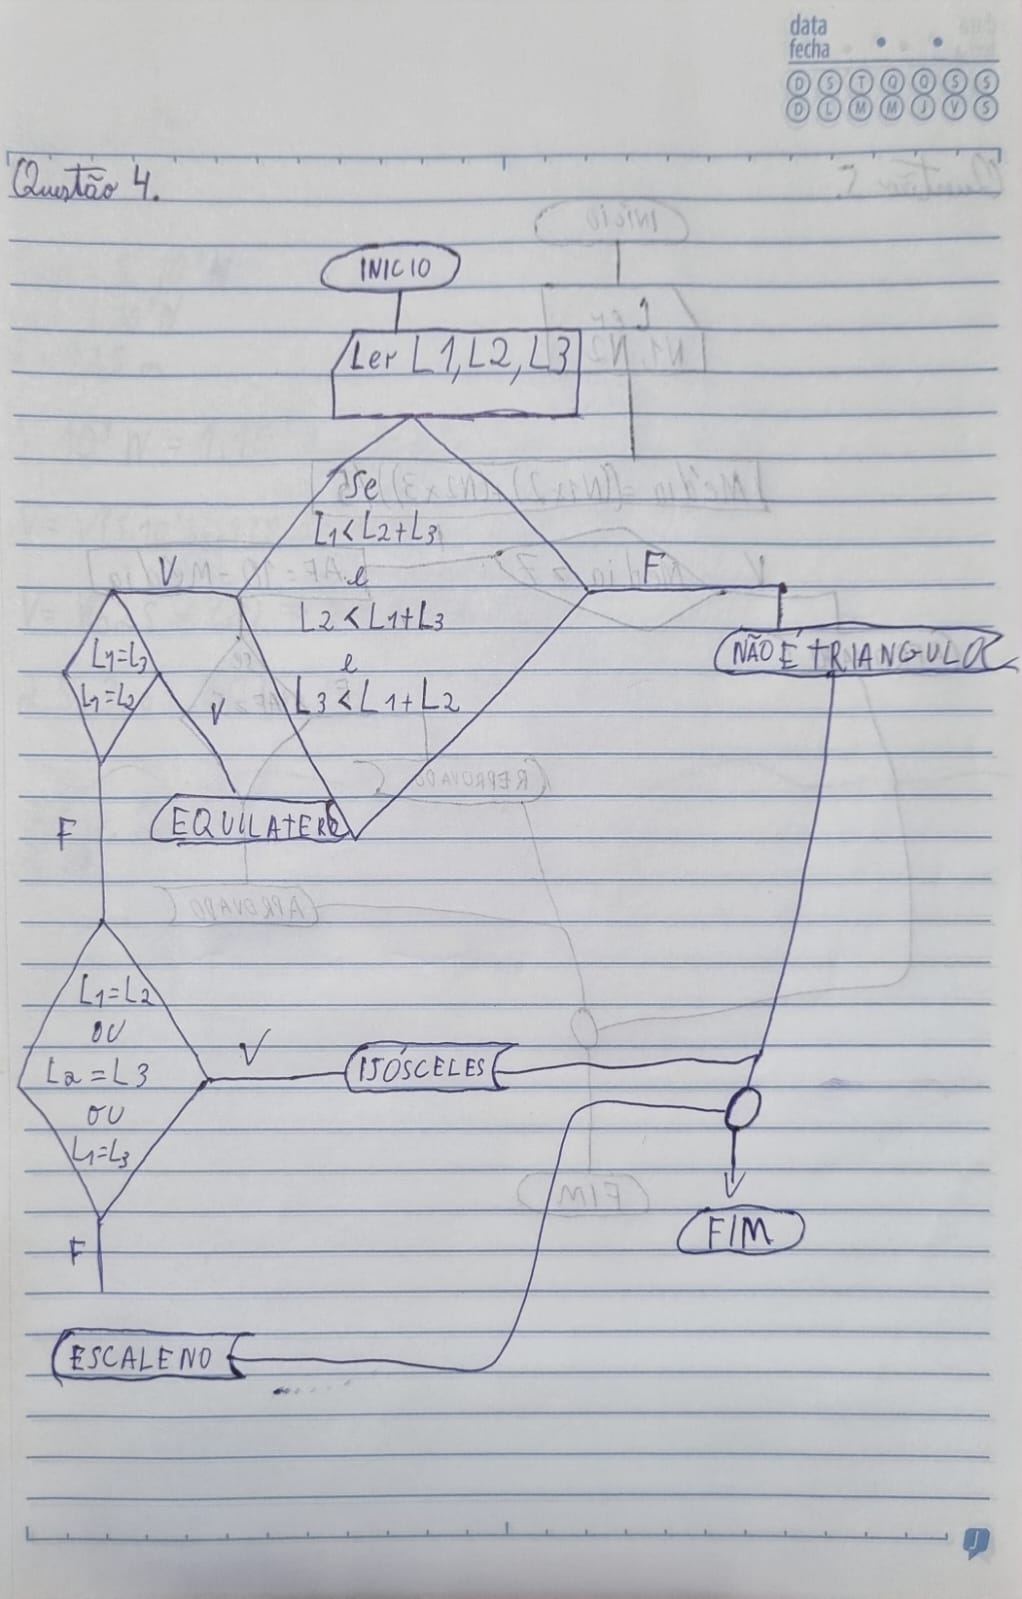 data
fecha
D S T Q Q S S
D L M M J V S
Questão 4.
INICIO
Ler L1, L2, L3
Se
L1 < L2 + L3
e
L2 < L1 + L3
e
L3 < L1 + L2
V
F
NÃO É TRIANGULO
L1 = L3
L1 = L2
V
EQUILATERO
F
L1 = L2
OU
L2 = L3
OU
L1 = L3
V
ISÓSCELES
F
FIM
ESCALENO
INICIO
Ler
N1, N2
V
REPROVADO
APROVADO
FIM